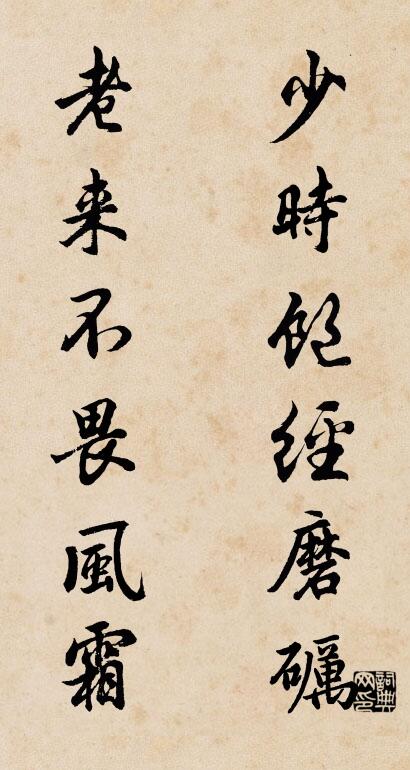 少時飽經磨礪
老来不畏風霜
詞典网印